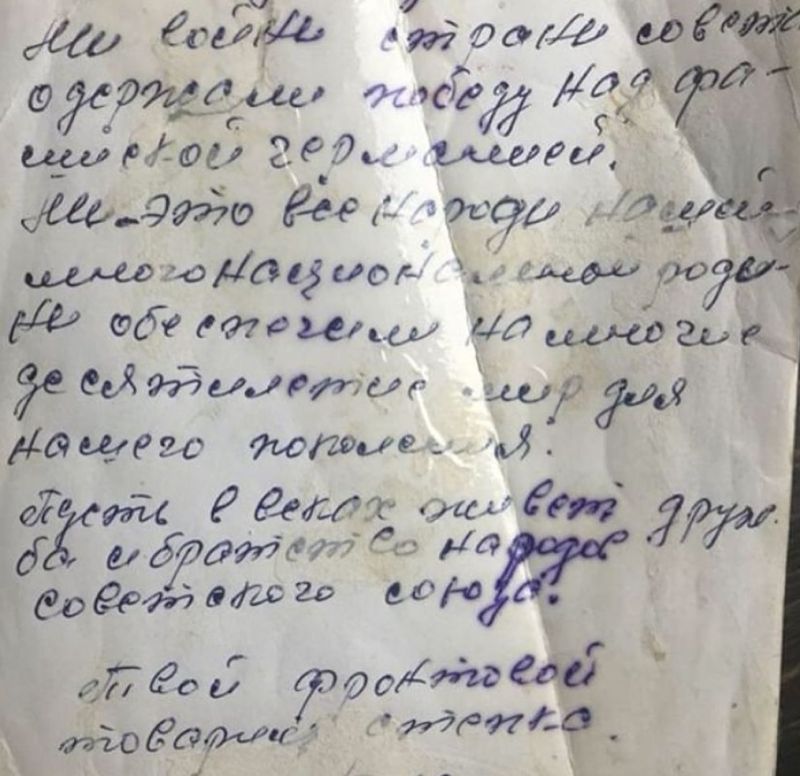 Ми войни страни совет
одержали победу над фа-
шиской германией.
Ми-это все народи нашей
многонациональной роди-
ни обеспечили на многие
десятилетие мир для
нашего поколения.
Пусть в веках живет друж-
ба и братство народов
советского союза.
Твой фронтовой
товарищ